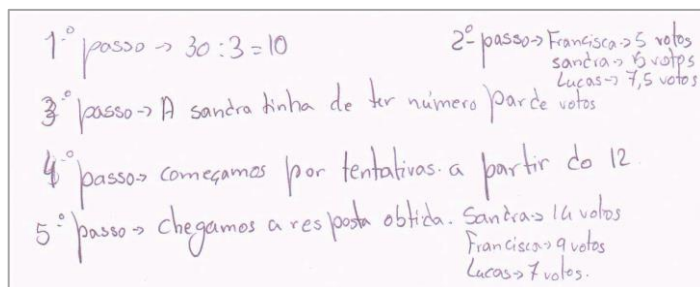 1.º passo → 30 : 3 = 10
2º passo → Francisca → 5 votos
Sandra → 15 votos
Lucas → 7,5 votos
3.º passo → A sandra tinha de ter número par de votos
4.º passo → começamos por tentativas. a partir do 12.
5.º passo → chegamos a resposta obtida. Sandra → 14 votos
Francisca → 9 votos
Lucas → 7 votos.